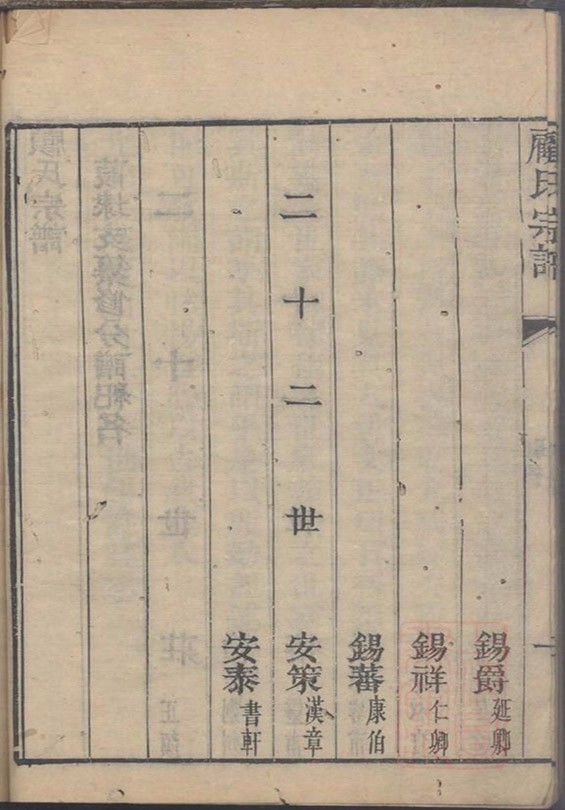 顧氏宗譜
一
錫爵 延卿
錫祥 仁卿
錫蕃 康伯
二十二世
安策 漢章
安泰 書軒